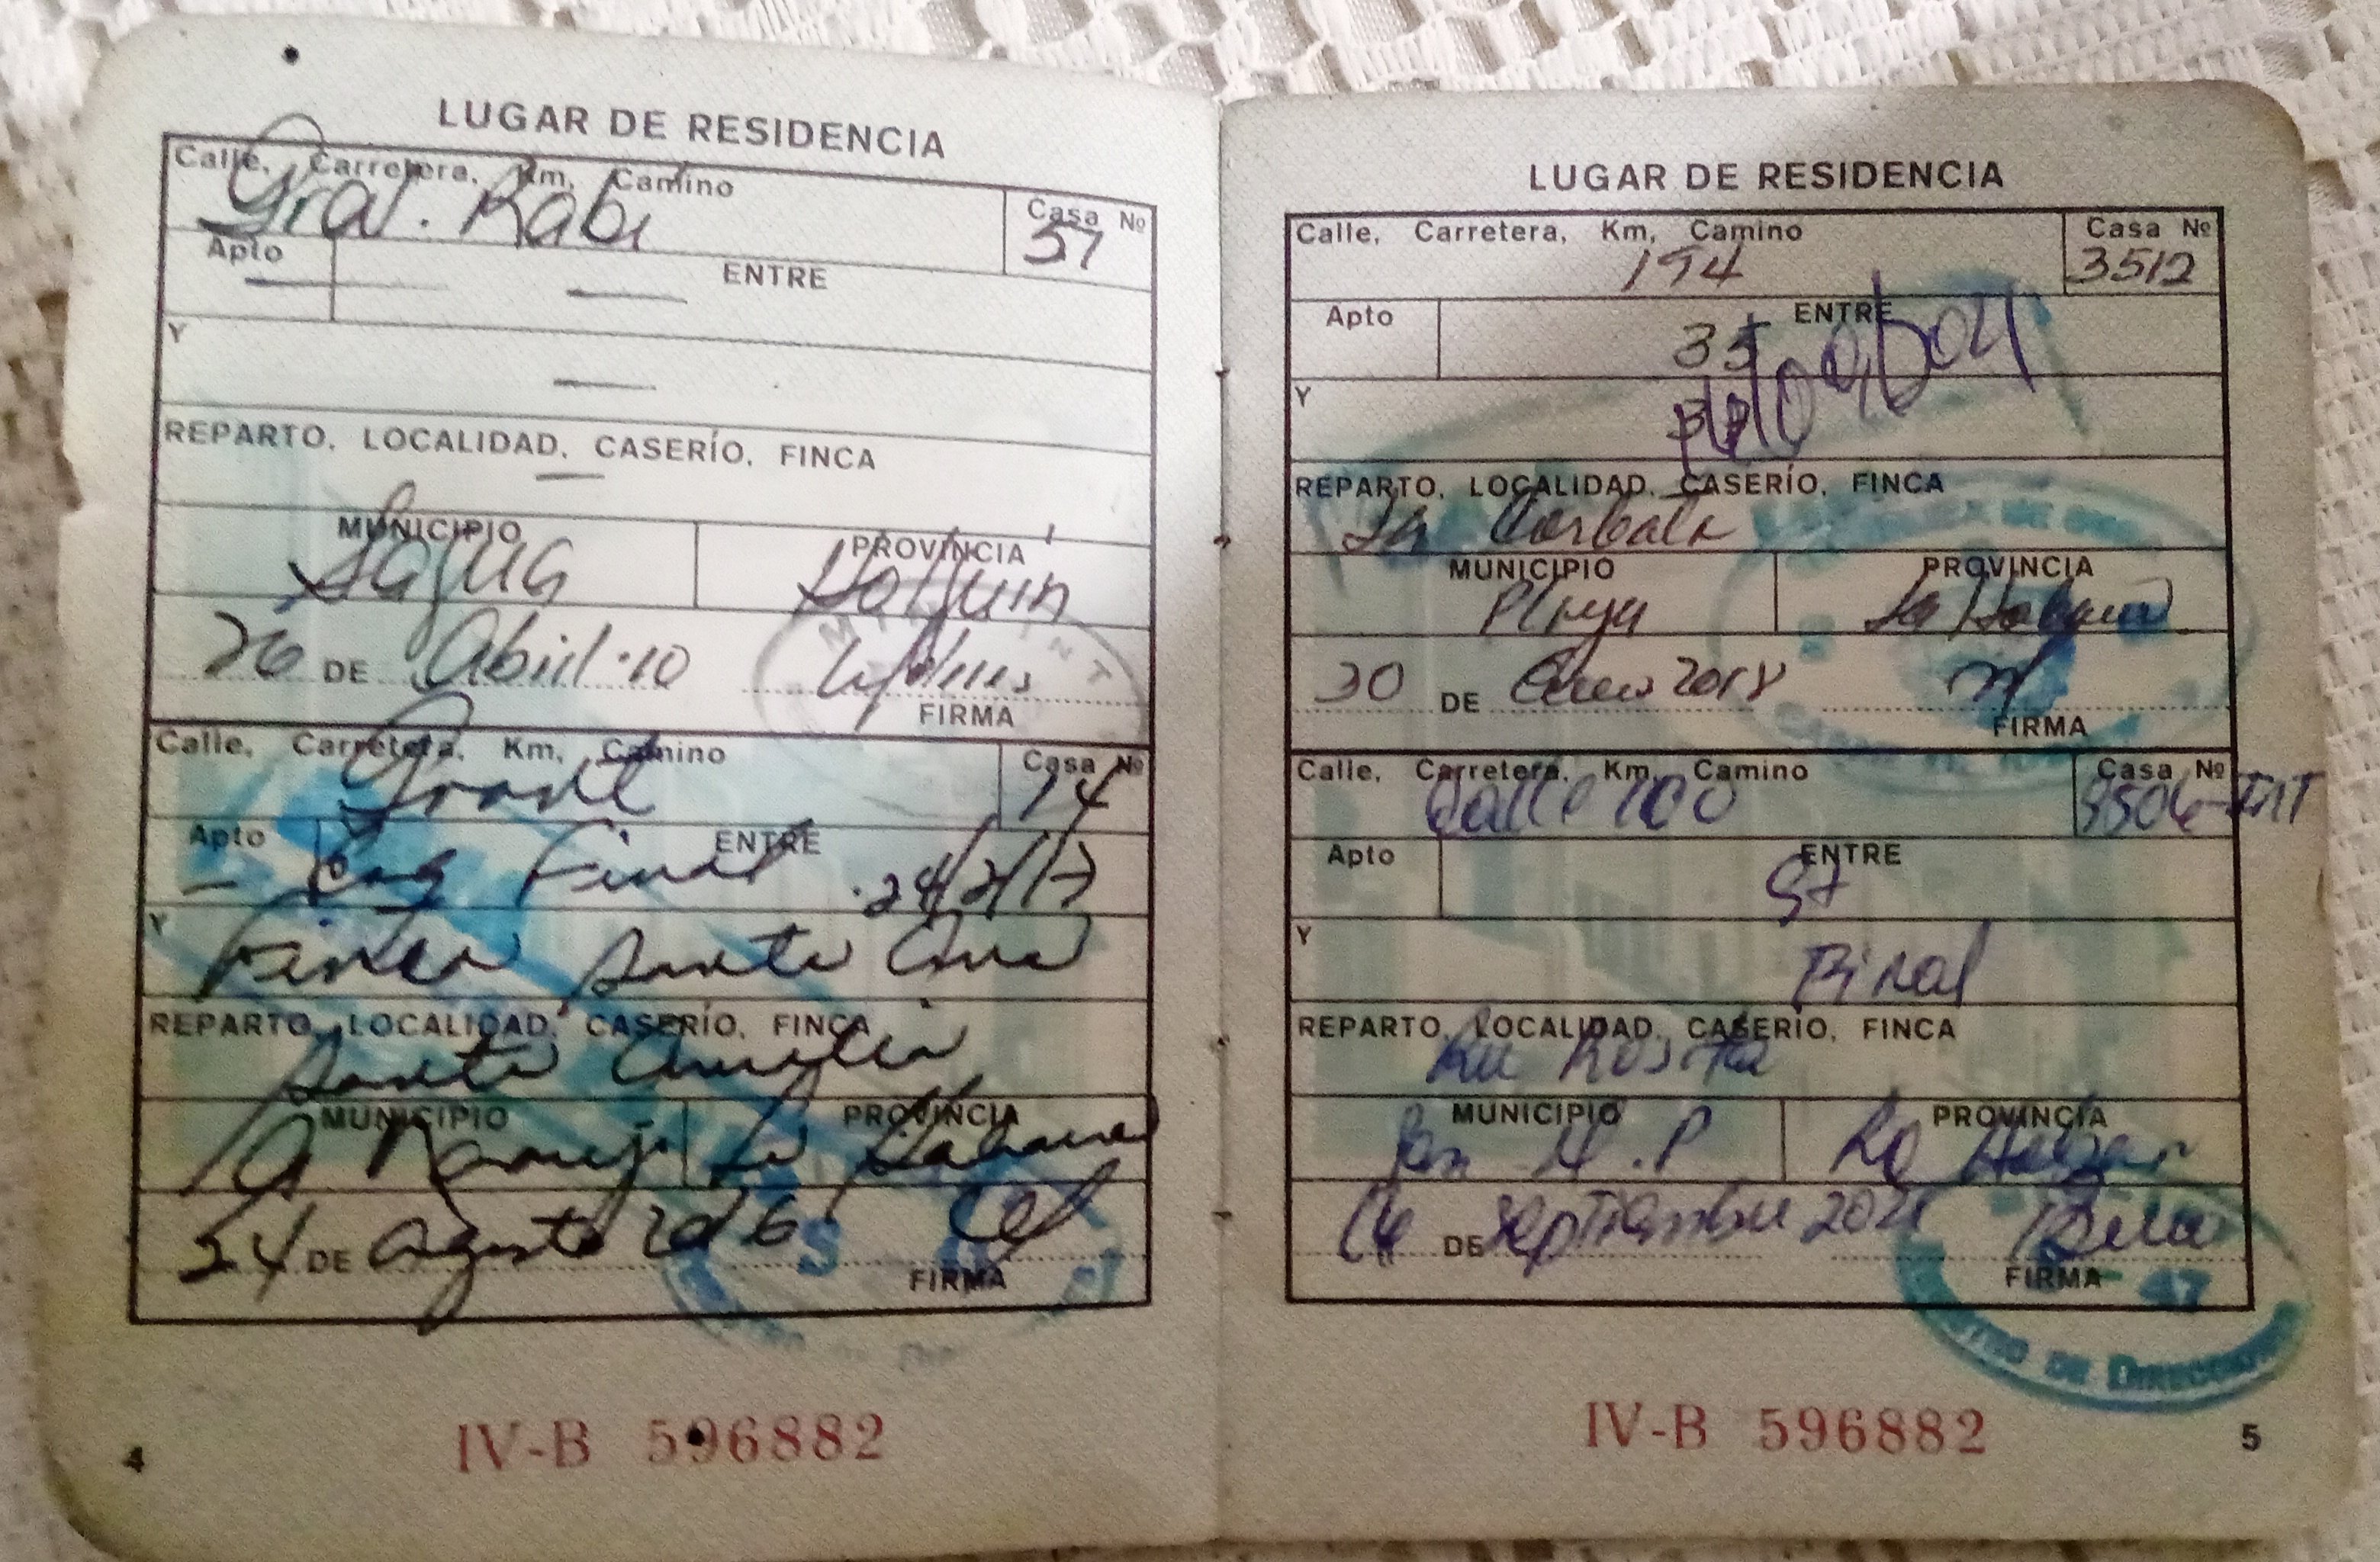 LUGAR DE RESIDENCIA
Calle, Carretera, Km, Camino
Gral. Rabi
Casa Nº
37
Apto
ENTRE
Y
REPARTO, LOCALIDAD, CASERÍO, FINCA
MUNICIPIO
Sagua
PROVINCIA
Holguín
26 DE Abril.10
FIRMA
Calle, Carretera, Km, Camino
Casa Nº
14
Apto
ENTRE
Final 24/2/17
Y
Finca Santa Ana
REPARTO, LOCALIDAD, CASERÍO, FINCA
Santa Amalia
MUNICIPIO
A Naranjo
PROVINCIA
La Habana
24 DE Agosto 2016
FIRMA
IV-B 596882
4
LUGAR DE RESIDENCIA
Calle, Carretera, Km, Camino
194
Casa Nº
3512
Apto
ENTRE
35
Y
REPARTO, LOCALIDAD, CASERÍO, FINCA
La Corbata
MUNICIPIO
Playa
PROVINCIA
La Habana
30 DE Enero 2018
FIRMA
Calle, Carretera, Km, Camino
Calle 100
Casa Nº
Apto
ENTRE
Y
Final
REPARTO, LOCALIDAD, CASERÍO, FINCA
Rosita
MUNICIPIO
San M.P
PROVINCIA
La Haban
DE Septiembre
FIRMA
47
DE DIRECCIONES
IV-B 596882
5